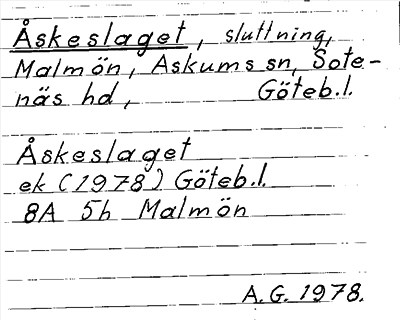 Åskeslaget, sluttning,
Malmön, Askums sn, Sote-
näs hd, Göteb.l.
Åskeslaget
ek (1978) Göteb.l.
8A 5h Malmön
A.G. 1978.